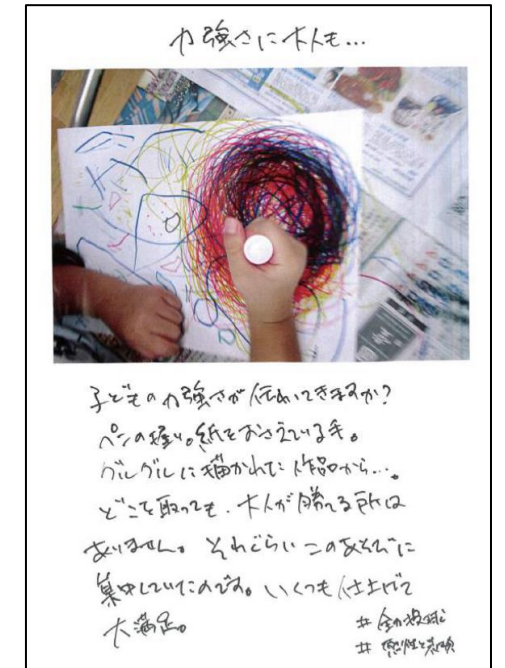 力強さに大人も…
子どもの力強さが伝わってきますか?
ペンの握り。紙をおさえている手。
グルグルに描かれた作品から…。
どこを取っても、大人が勝てる所は
ありません。それぐらいこのあそびに
集中していたのです。いくつも仕上げて
大満足。
#全力投球
#感性と表現